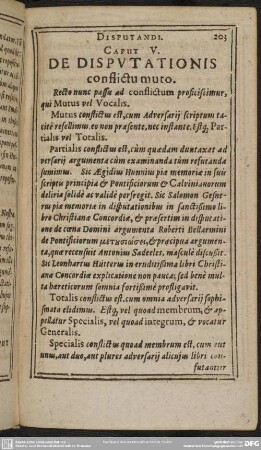 DISPUTANDI. 203
CAPUT V.
DE DISPVTATIONIS
conflictu muto.
Recto nunc passu ad conflictum proficiscimur,
qui Mutus vel Vocalis.
Mutus conflictus est, cum Adversarij scriptum ta-
citè refellimus, eo non præsente, nec instante. Estq́; Par-
tialis vel Totalis.
Partialis conflictus est, cùm quædam duntaxat ad
versarij argumenta cùm examinanda tùm refutanda
sumimus. Sic Ægidius Hunnius piæ memoriæ in suis
scriptis præcipua & Pontificiorum & Calvinianorum
deliria solidè ac validè perfregit. Sic Salomon Gesne-
rus piæ memoriæ in disputationibus in sanctissimũ li-
brũ Christianæ Concordiæ, & præsertim in disputatio-
ne de cœna Domini argumenta Roberti Bellarmini
de Pontificiorum μετουσιώσει, & præcipua argumen-
ta, quæ recensuit Antonius Sadeeles, masculè discussit.
Sic Leonhartus Hütterus in eruditissima libri Christi-
anæ Concordiæ explicatione non paucas, sed benè mul-
ta hæreticorum somnia fortissimè profligavit.
Totalis conflictus est, cum omnia adversarij sophi-
smata elidimus. Estq́; vel quoad membrum, & ap-
pellatur Specialis, vel quoad integrum, & vocatur
Generalis.
Specialis conflictus quoad membrum est, cum aut
unum, aut duo, aut plures adversarij alicujus libri con-
futantur